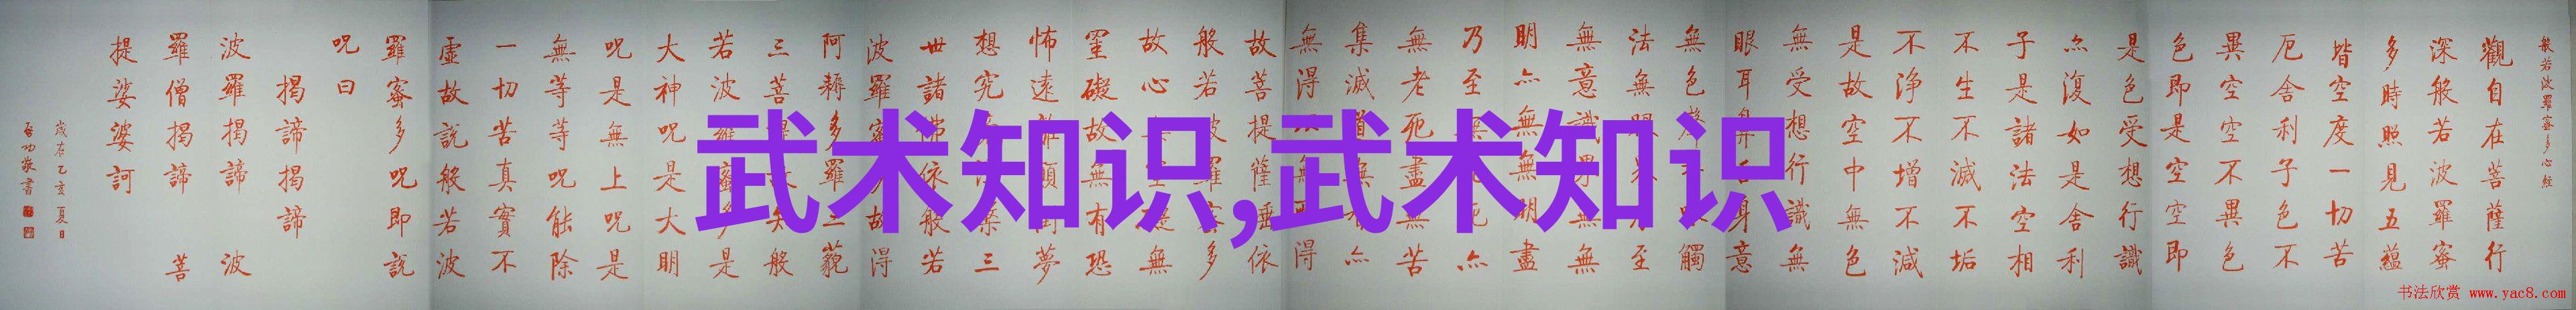 般若波羅蜜多心經
觀自在菩薩行
深般若波羅蜜
多時照見五蘊
皆空度一切苦
厄舍利子色不
異空空不異色
色即是空空即
是色受想行識
亦復如是舍利
子是諸法空相
不生不滅不垢
不淨不增不減
是故空中無色
無受想行識無
眼耳鼻舌身意
無色聲觸
法無眼界至
無意識界無
明亦無無明盡
乃至無死亦
無老死盡無苦
集滅道無亦
無得無得
故菩提薩埵依
般若波羅蜜多
故心無無
罣礙故無有恐
怖遠離顛倒夢
想究槃三
世諸佛依般若
波羅蜜故得
阿耨多羅三藐
三菩故知般
若波羅蜜多是
大神咒是大明
咒是無上咒是
無等等咒能除
一切苦真實不
虛故說般若波
羅蜜多咒即說
咒曰
揭諦揭諦
波羅揭諦 波
羅僧揭諦 菩
提娑婆訶
歲在乙亥夏日
啓功敬書
武术知识,武术知识
书法欣赏 www.yac8.com